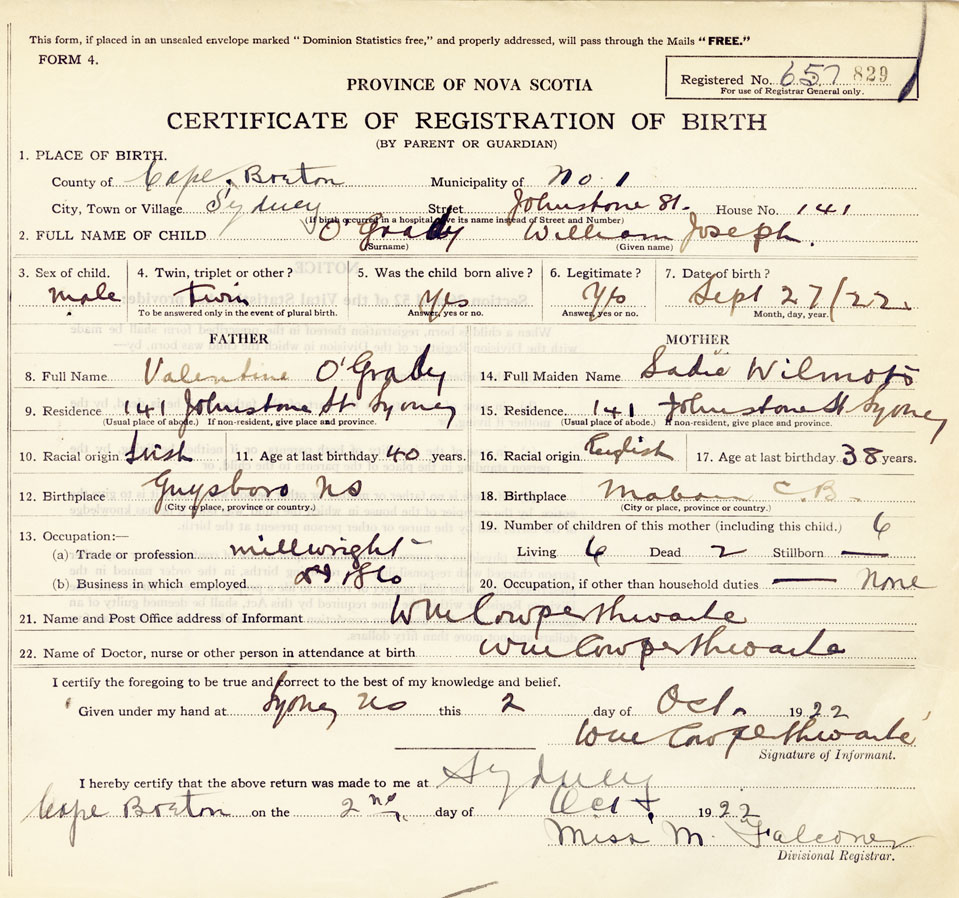 This form, if placed in an unsealed envelope marked "Dominion Statistics free," and properly addressed, will pass through the Mails "FREE."
FORM 4.
Registered No. 657 829
For use of Registrar General only.
PROVINCE OF NOVA SCOTIA
CERTIFICATE OF REGISTRATION OF BIRTH
(BY PARENT OR GUARDIAN)
1. PLACE OF BIRTH.
County of Cape Breton Municipality of No 1
City, Town or Village Sydney Street Johnstone St. House No. 141
(If birth occurred in a hospital give its name instead of Street and Number)
2. FULL NAME OF CHILD O'Grady William Joseph.
(Surname) (Given name)
3. Sex of child. 4. Twin, triplet or other? 5. Was the child born alive? 6. Legitimate? 7. Date of birth?
male Twin Yes Yes Sept 27/22
To be answered only in the event of plural birth. Answer, yes or no. Answer, yes or no. Month, day, year.
FATHER MOTHER
8. Full Name Valentine O'Grady 14. Full Maiden Name Sadie Wilmots
9. Residence 141 Johnstone St Sydney 15. Residence. 141 Johnstone St Sydney
(Usual place of abode.) If non-resident, give place and province. (Usual place of abode.) If non-resident, give place and province.
10. Racial origin Irish 11. Age at last birthday 40 years. 16. Racial origin English 17. Age at last birthday 38 years.
12. Birthplace Guysboro NS 18. Birthplace Mabou C.B.
(City or place, province or country.) (City or place, province or country.)
13. Occupation:— 19. Number of children of this mother (including this child.) 6
(a) Trade or profession millwright Living 6 Dead 2 Stillborn —
(b) Business in which employed 20. Occupation, if other than household duties — None
21. Name and Post Office address of Informant Wm Cowperthwaite
22. Name of Doctor, nurse or other person in attendance at birth Wm Cowperthwaite
I certify the foregoing to be true and correct to the best of my knowledge and belief.
Given under my hand at Sydney NS this 2 day of Oct. 1922
Wm Cowperthwaite
Signature of Informant.
I hereby certify that the above return was made to me at Sydney
Cape Breton on the 2nd. day of Oct. 1922
Miss M. Falconer
Divisional Registrar.